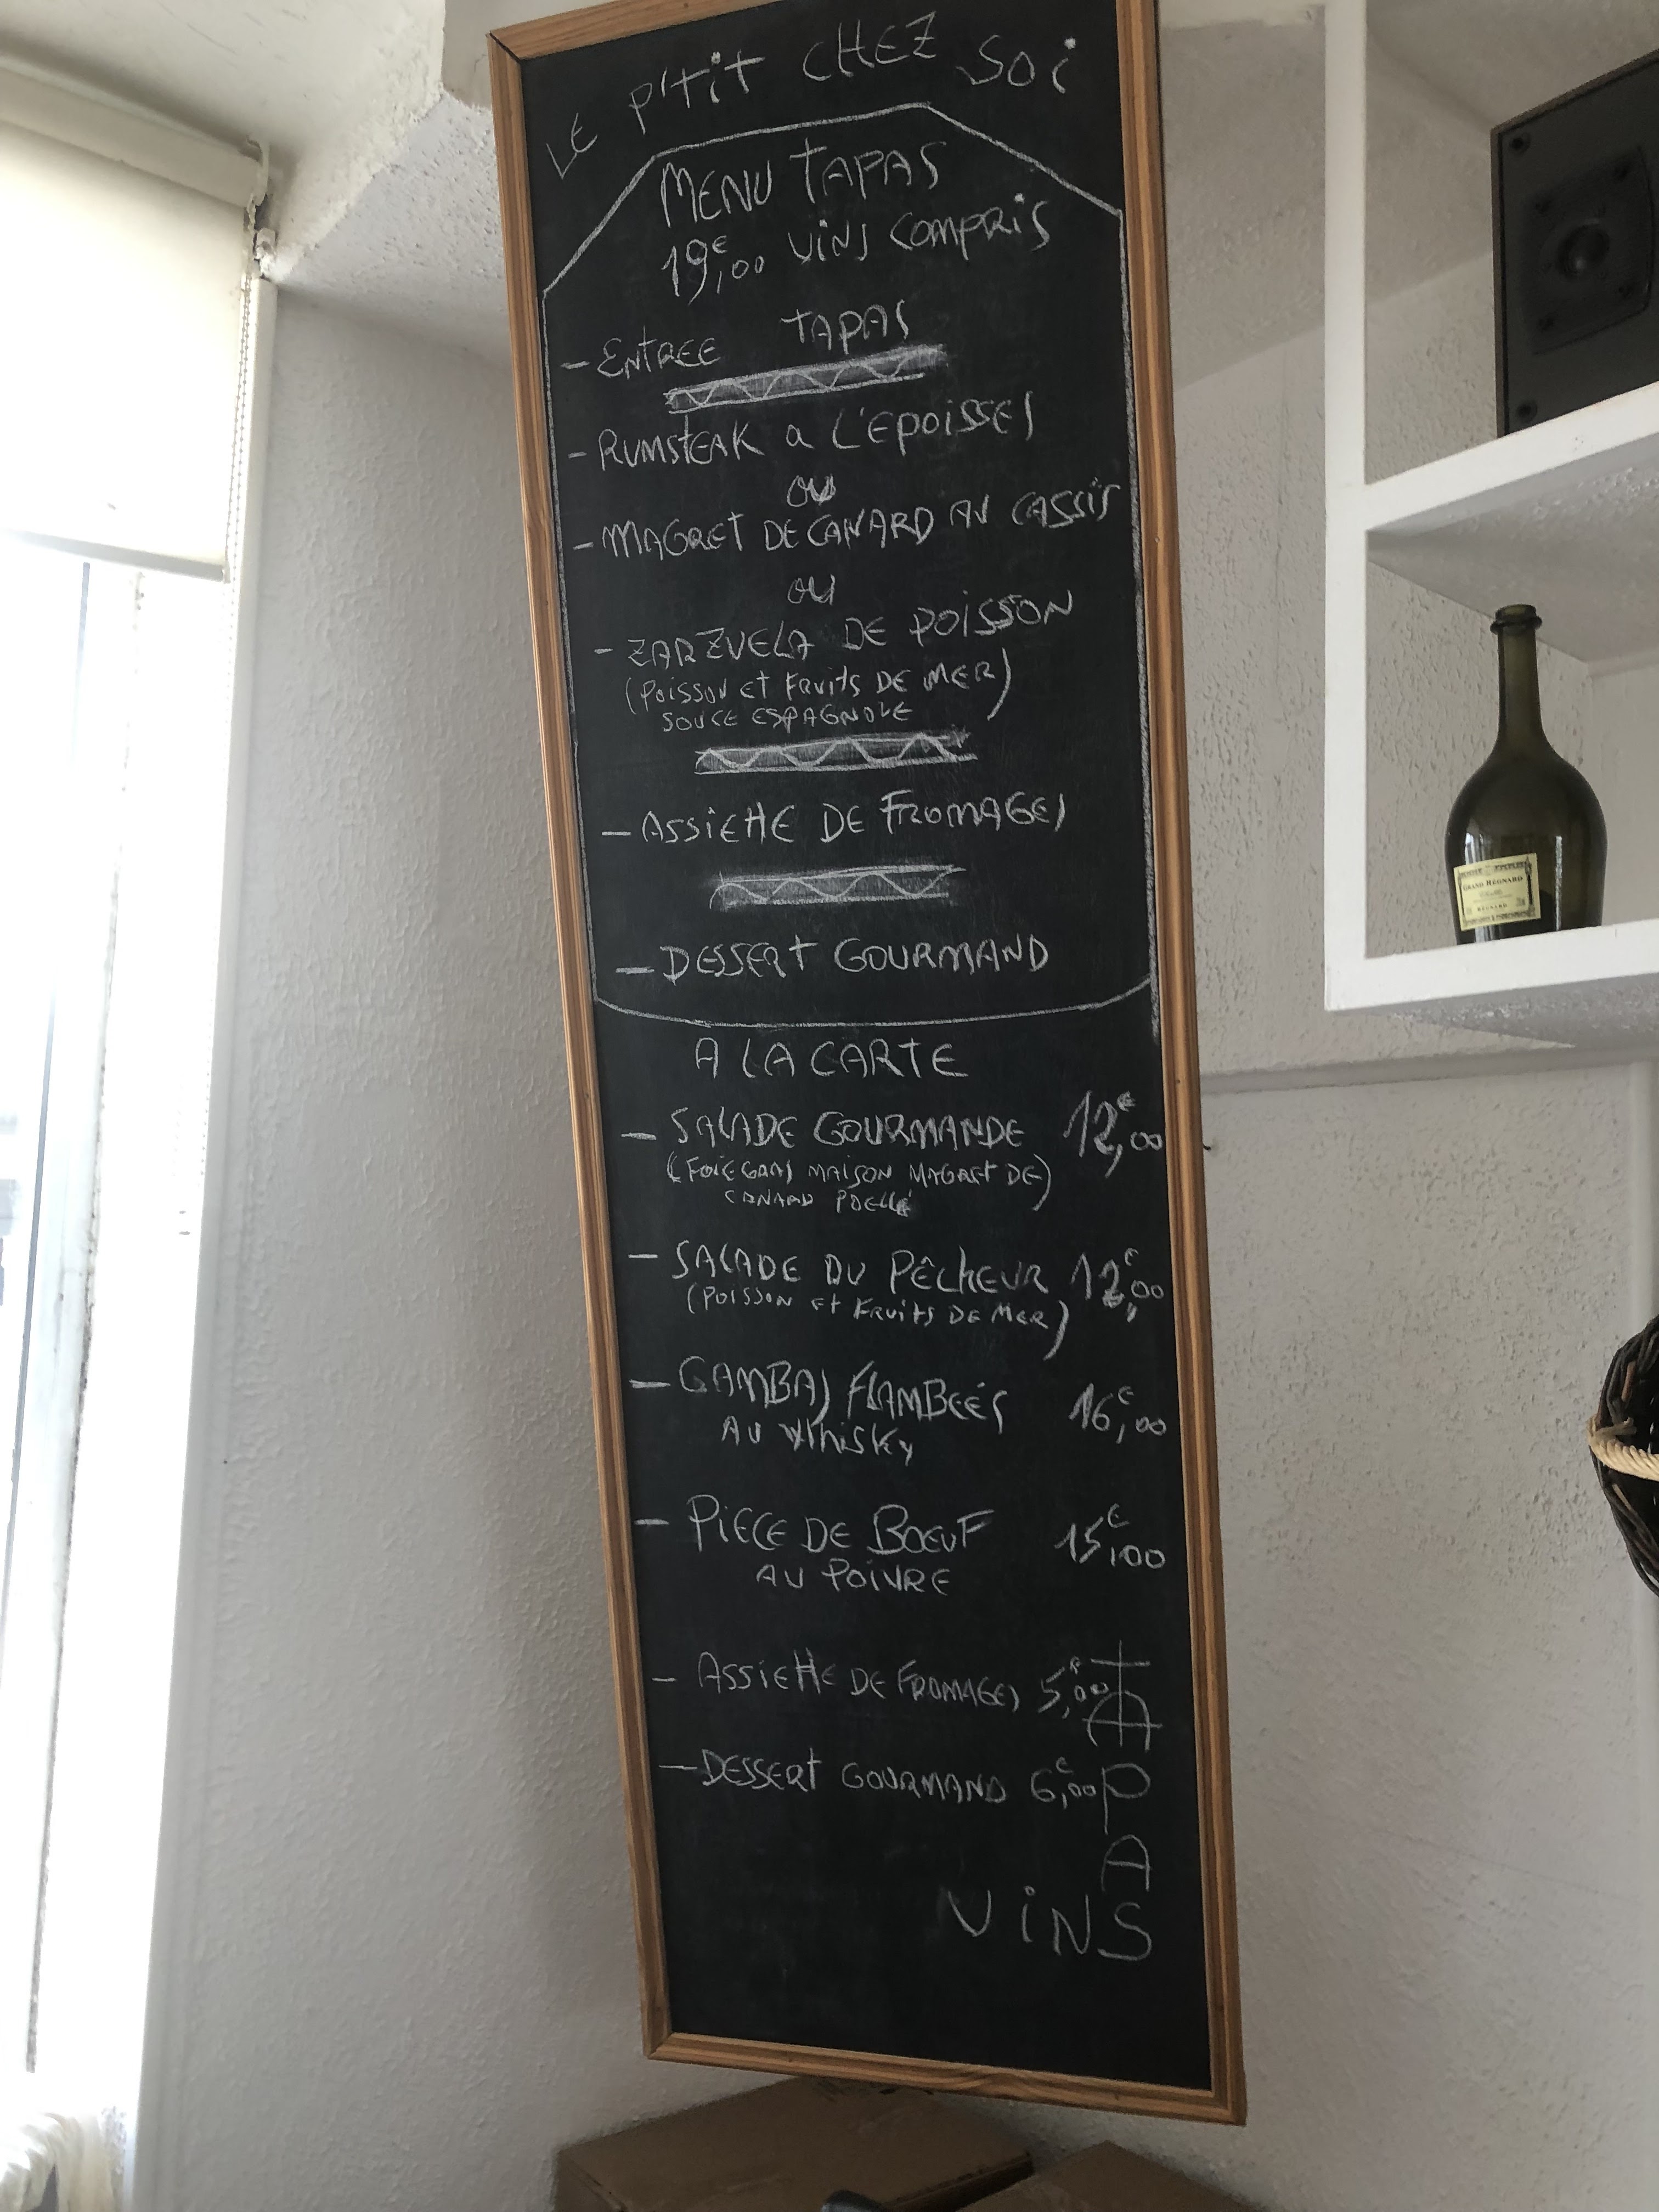 LE P'TIT CHEZ SOI
MENU TAPAS
19€,00 VINS COMPRIS
- ENTREE TAPAS
- RUMSTEAK a L'EPOISSES
OU
- MAGRET DE CANARD AU CASSIS
OU
- ZARZUELA DE POISSON
(POISSON ET FRUITS DE MER)
SOUCE ESPAGNOLE
- ASSIETTE DE FROMAGES
- DESSERT GOURMAND
A LA CARTE
- SALADE GOURMANDE 12€,00
(FOIE GRAS MAISON MAGRET DE)
CANARD POELLÉ
- SALADE DU PÊCHEUR 12€,00
(POISSON ET FRUITS DE MER)
- GAMBAS FLAMBEÉS 16€,00
AU WHISKY
- PIECE DE BOEUF 15€,00
AU POIVRE
- ASSIETTE DE FROMAGES 5€,00
- DESSERT GOURMAND 6€,00
TAPAS
VINS
GRAND RÉGNARD
RÉGNARD